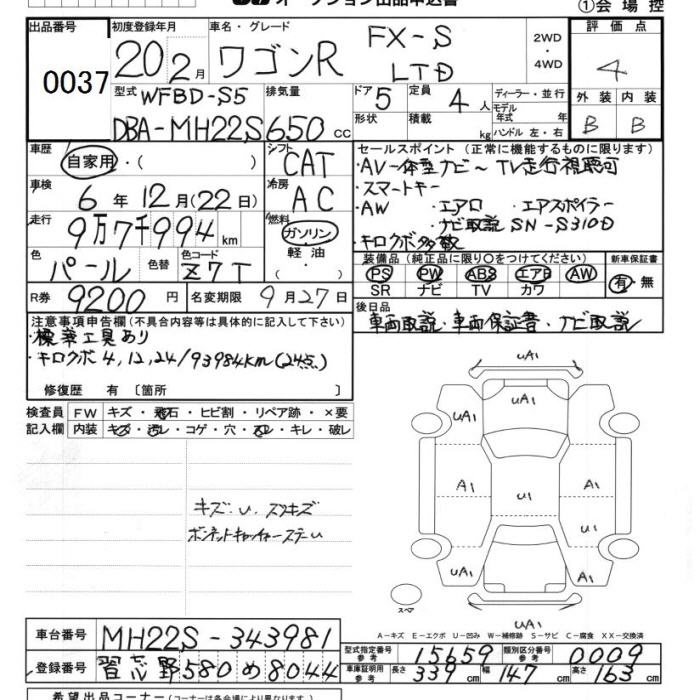 オークション出品申込書
①会場控
出品番号 0037
初度登録年月 20 2月
車名・グレード ワゴンR FX-S LTD
2WD・4WD
評価点 4
外装 B 内装 B
型式 WFBD-S5
DBA-MH22S
排気量 650cc
ドア 5 形状
定員 4人 積載 kg
ディーラー・並行
モデル年式 年式
ハンドル 左・右
車歴 自家用・( )
シフト CAT
車検 6年12月(22日)
冷房 AC
走行 9万7千994km
燃料 ガソリン・軽油・( )
色 パール 色替 色コード Z7T
R券 9200円 名変期限 9月27日
セールスポイント (正常に機能するものに限ります)
・AV一体型ナビ~TV走行視聴可
・スマートキー
・AW ・エアロ ・エアスポイラー
・ナビ取説 SN-S310D
・キロクボ多数
装備品 (純正品に限り○をつけてください)
PS PW ABS エアB AW
SR ナビ TV カワ
新車保証書 有・無
後日品
車両取説・車両保証書・ナビ取説
注意事項申告欄 (不具合内容等は具体的に記入して下さい)
・標準工具あり
・キロクボ 4,12,24/93984km(24点)
修復歴 有 〔箇所 〕
検査員記入欄 FW キズ・飛石・ヒビ割・リペア跡・×要
内装 キズ・汚レ・コゲ・穴・スレ・キレ・破レ
キズ・U・スリキズ
ボンネットキャッチャーステーU
UA1
UA1 UA1
A1 U1 A1
U1
UA1 UA1
スペア
UA1
A-キズ E-エクボ U-凹み W-補修跡 S-サビ C-腐食 XX-交換済
車台番号 MH22S-343981
登録番号 習志野580め8044
型式指定番号 参考 15659 類別区分番号 参考 0009
車庫証明用 参考 長さ 339cm 幅 147cm 高さ 163cm
希望出品コーナー (コーナーは各会場により異なります。)